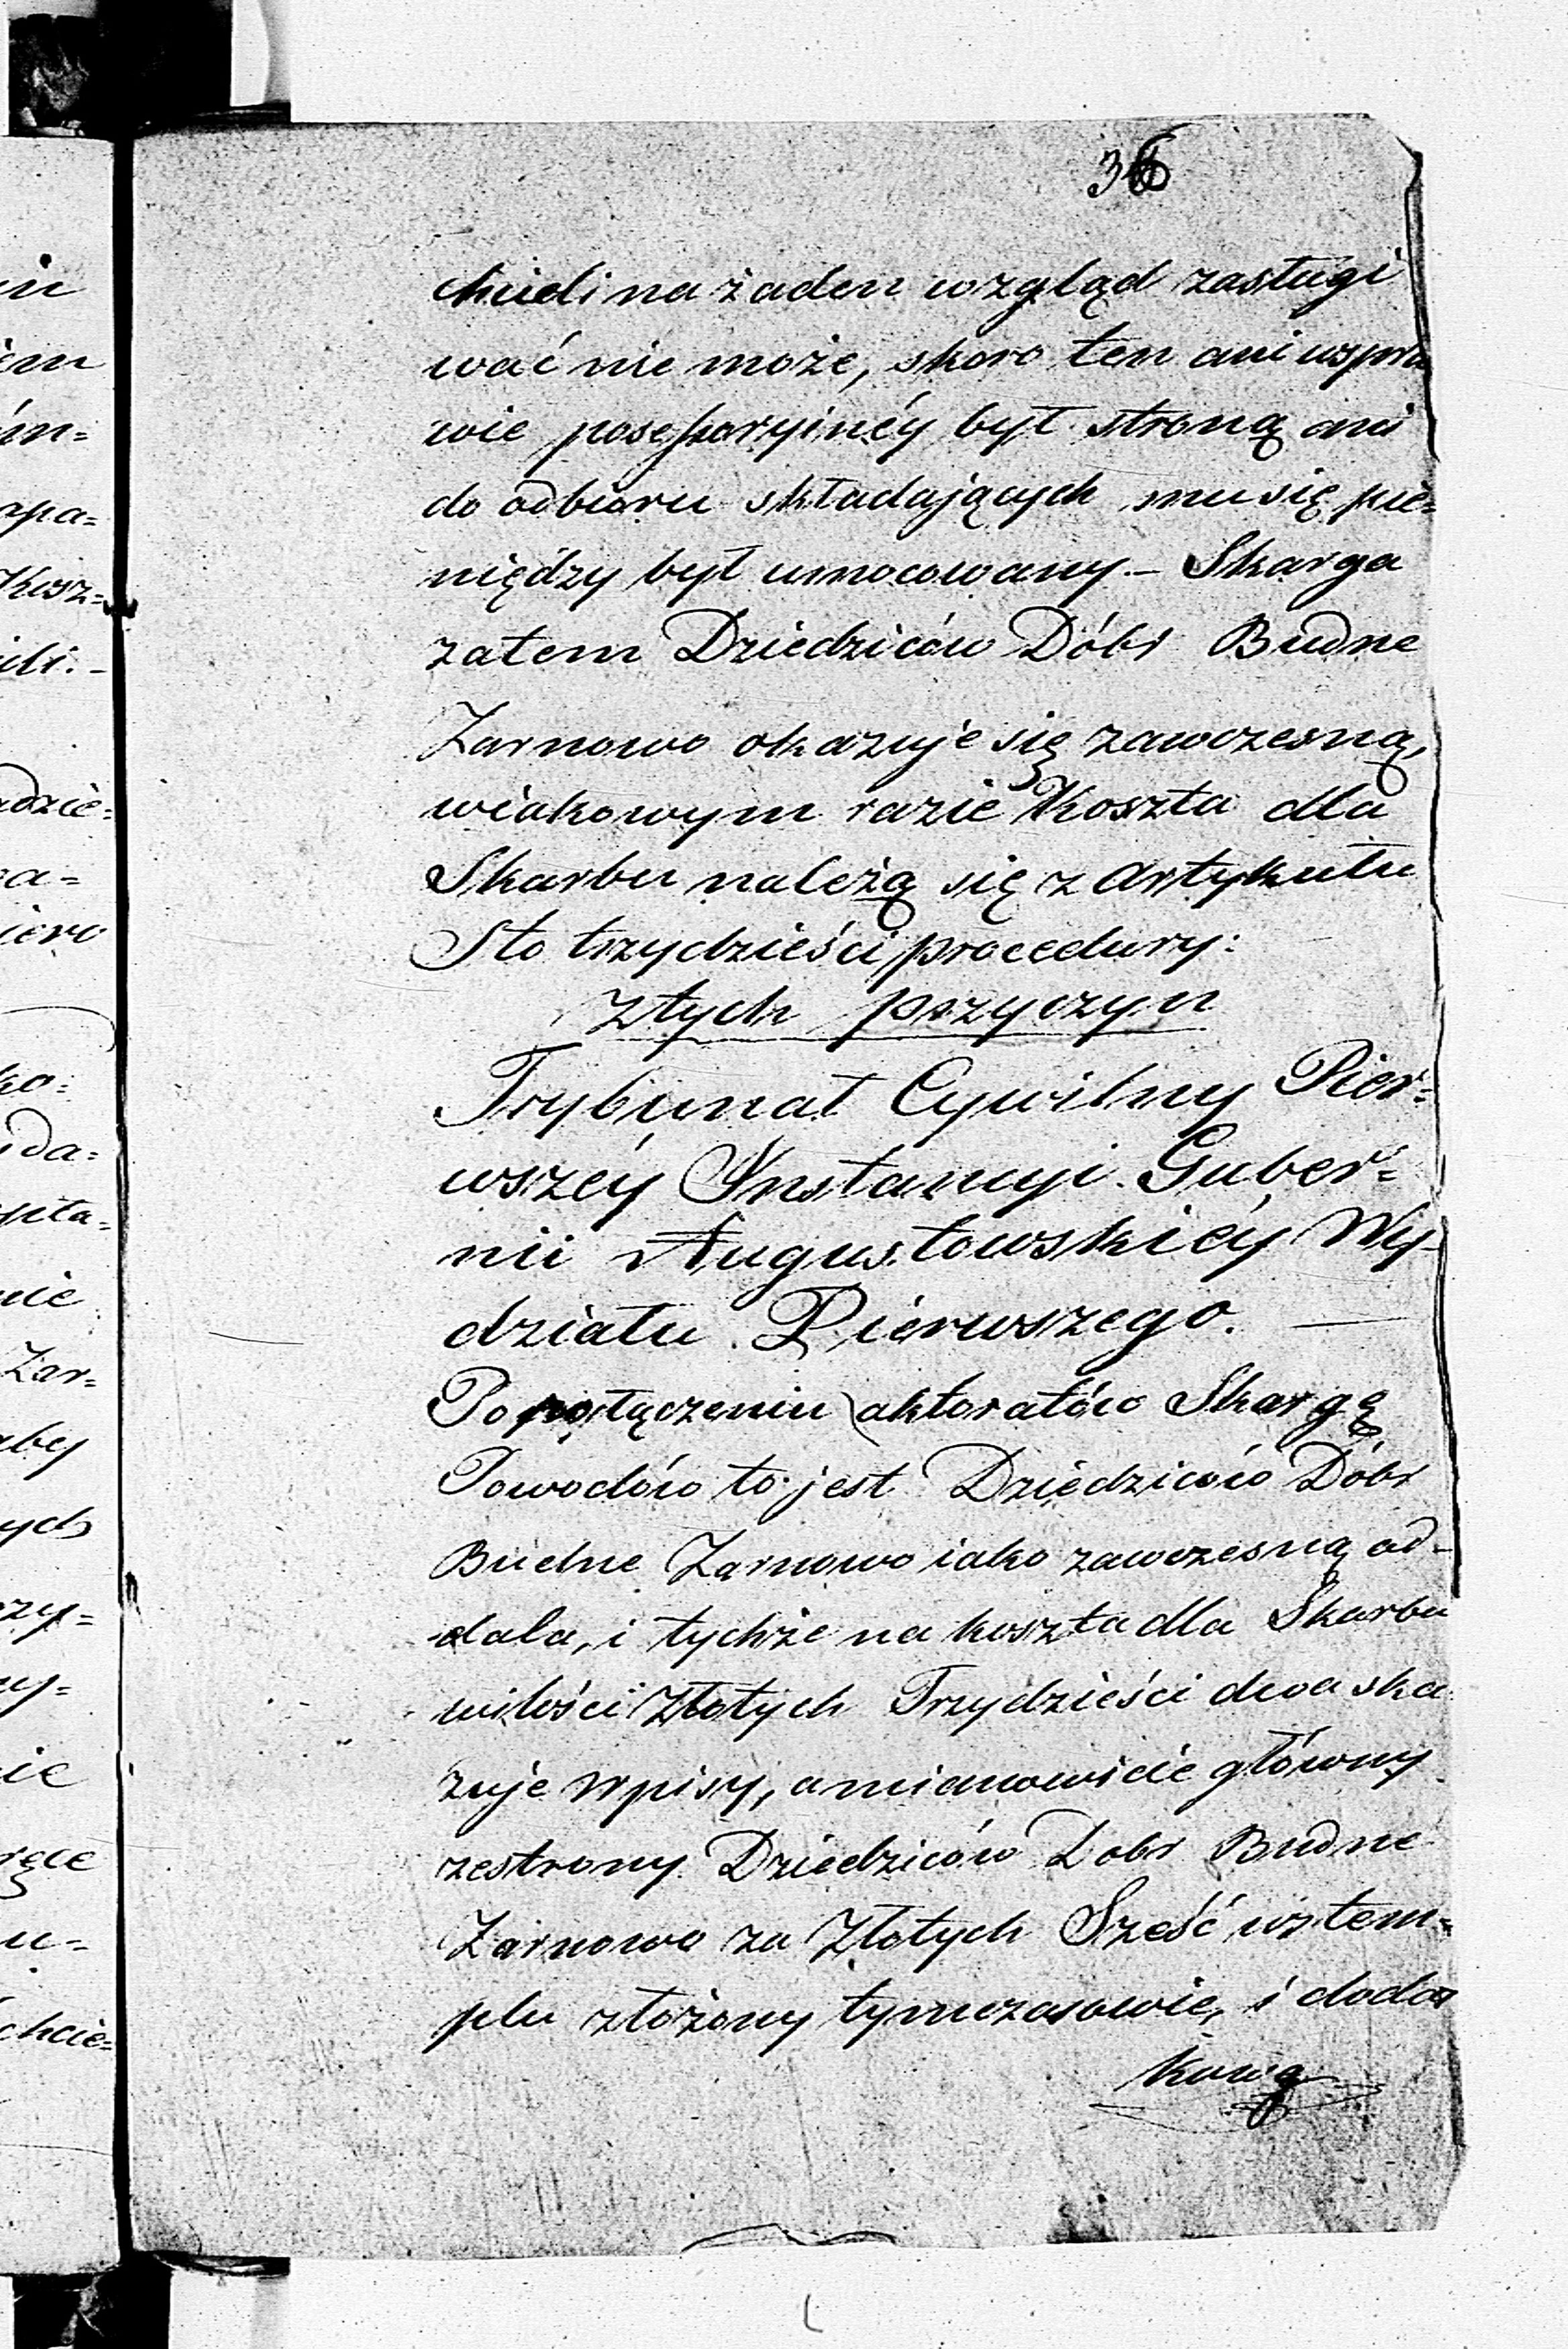 36
chcieli na żaden wzgląd zasługi
wać nie może, skoro ten ani wspra
wie posessoryinéy był stroną ani
do odbioru składających mu się pie=
niędzy był umocowany. – Skarga
zatem Dziedziców Dóbr Budne
Żarnowo okazuje się zawczesną,
wiakowym razie Koszta dla
Skarbu należą się z Artykułu
Sto trzydzieści procedury:
Z tych przyczyn
Trybunał Cywilny Pier=
wszéy Instancyi Guber=
nii Augustowskiéy Wy-
działu Pierwszego.
Po połączeniu aktoratów Skargę
Powodów to jest Dziedziców Dóbr
Budne Żarnowo iako zawczesną od-
dala, i tychże na koszta dla Skarbu
wilości Złotych Trzydzieści dwa ska
zuje wpisy, a mianowicie główny
zestrony Dziedziców Dobr Budne
Żarnowo za Złotych Sześć wstem=
plu złożony tymczasowie, i dodat
kową
in
iem
ón=
apa=
Kosz=
ili. –
adzie=
za=
iero
ko=
da=
pita=
nie
Żar=
aby
ych
czy=
ny=
nie
ręce
u=
chcie=